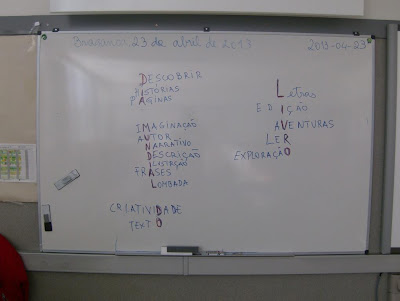 Bragança, 23 de abril de 2013
2013-04-23
DESCOBRIR
HISTÓRIAS
PÁGINAS
IMAGINAÇÃO
AUTOR
NARRATIVO
DESCRIÇÃO
ILUSTRAÇÃO
FRASES
LOMBADA
CRIATIVIDADE
TEXTO
Letras
EDIÇÃO
AVENTURAS
LER
EXPLORAÇÃO